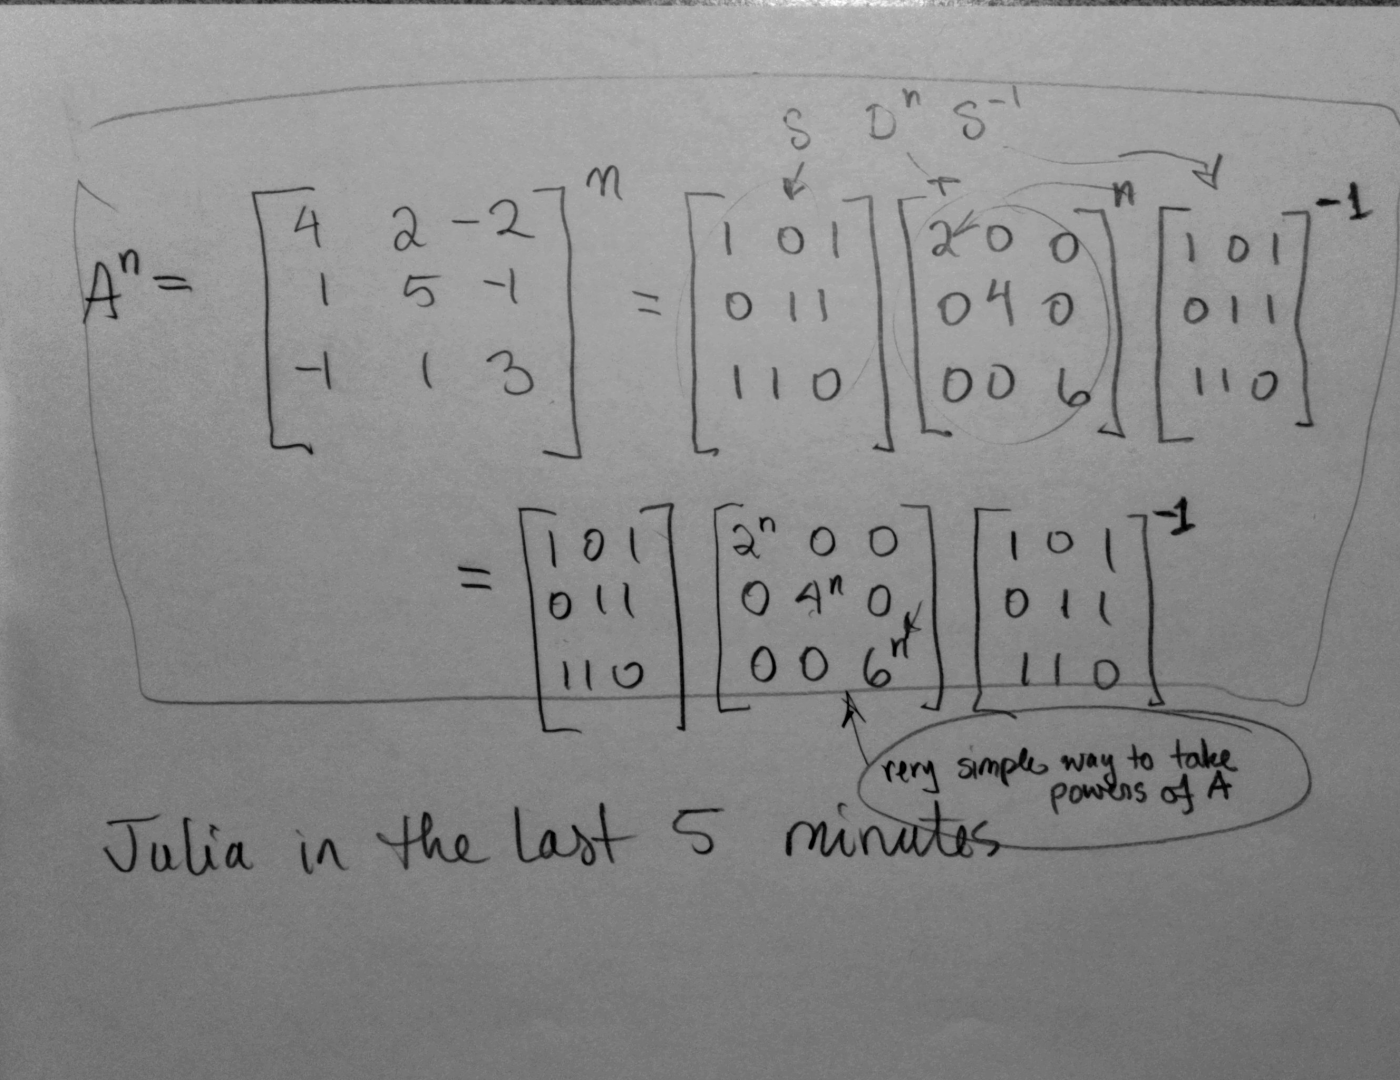 S Dⁿ S⁻¹
Aⁿ = [4 2 -2; 1 5 -1; -1 1 3]ⁿ = [1 0 1; 0 1 1; 1 1 0] [2 0 0; 0 4 0; 0 0 6]ⁿ [1 0 1; 0 1 1; 1 1 0]⁻¹
= [1 0 1; 0 1 1; 1 1 0] [2ⁿ 0 0; 0 4ⁿ 0; 0 0 6ⁿ] [1 0 1; 0 1 1; 1 1 0]⁻¹
very simple way to take
powers of A
Julia in the last 5 minutes